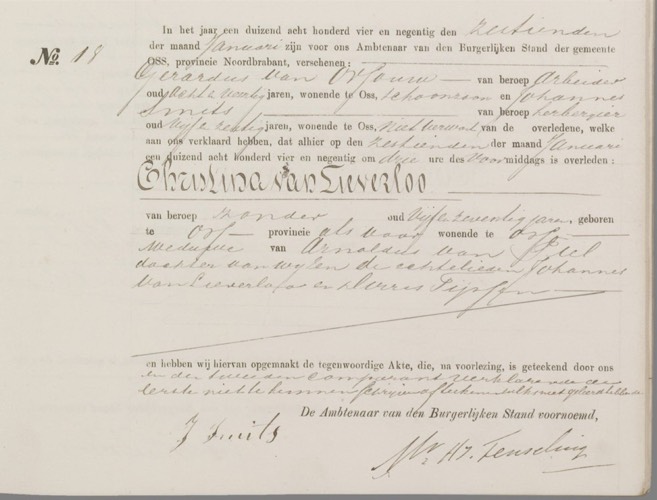 In het jaar een duizend acht honderd vier en negentig den zestienden
No. 18 der maand Januari zijn voor ons Ambtenaar van den Burgerlijken Stand der gemeente
OSS, provincie Noordbrabant, verschenen:
Gerardus van Orsouw van beroep Arbeider
oud acht & veertig jaren, wonende te Oss, schoonzoon en Johannes
Smits van beroep herbergier
oud vijf & zestig jaren, wonende te Oss, niet verwant van de overledene, welke
aan ons verklaard hebben, dat alhier op den zestienden der maand Januari
een duizend acht honderd vier en negentig om drie ure des voormiddags is overleden:
Christina van Lieverloo
van beroep zonder oud vijf & zeventig jaren, geboren
te Oss provincie als voor wonende te Oss
Weduwe van Arnoldus van
dochter van wijlen de echtelieden Johannes
van Lieverloo en Dorris Tijssen
en hebben wij hiervan opgemaakt de tegenwoordige Akte, die, na voorlezing, is geteekend door ons
en den tweeden comparant verklarende de
eerste niet te kunnen schrijven of teekenen als niet geleerd hebbende
De Ambtenaar van den Burgerlijken Stand voornoemd,
J Smits